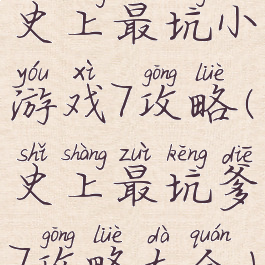 史上最坑小
yóu xì gōng lüè
游戏7攻略(
shǐ shàng zuì kēng diē
史上最坑爹
gōng lüè dà quán
7攻略大全)